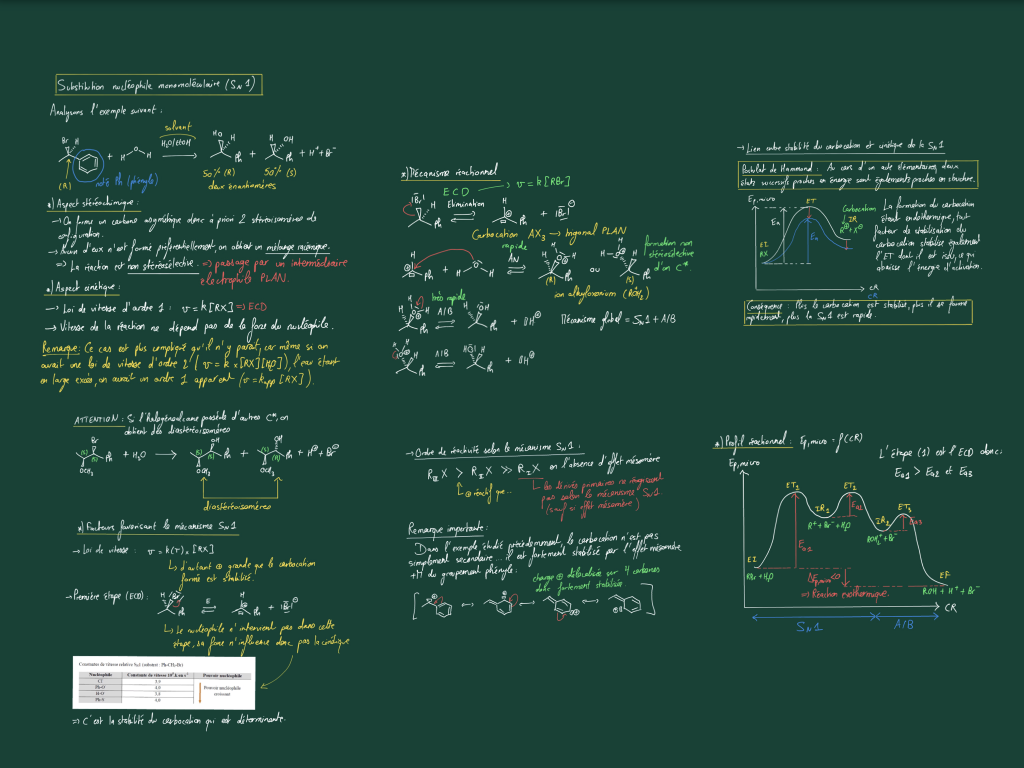 Substitution nucléophile monomoléculaire (SN1)
Analysons l'exemple suivant :
solvant
H2O/EtOH
Br H
HO H
H OH
Ph + Ph + H⁺ + Br⁻
(R)
noté Ph (phényle)
50% (R) 50% (S)
deux énantiomères
*) Aspect stéréochimique :
→ On forme un carbone asymétrique donc à priori 2 stéréoisomères de
configuration.
→ Aucun d'eux n'est formé préférentiellement, on obtient un mélange racémique.
⇒ La réaction est non stéréosélective. ⇒ passage par un intermédiaire
électrophile PLAN.
*) Aspect cinétique :
→ Loi de vitesse d'ordre 1 : v = k[RX] ⇒ ECD
→ Vitesse de la réaction ne dépend pas de la force du nucléophile.
Remarque : Ce cas est plus compliqué qu'il n'y paraît, car même si on
aurait une loi de vitesse d'ordre 2 (v = k × [RX][H2O]), l'eau étant
en large excès, on aurait un ordre 1 apparent (v = kapp [RX]).
ATTENTION : Si l'halogénoalcane possède d'autres C*, on
obtient des diastéréoisomères
Br
OH
OH
Ph + H2O → Ph + Ph + H⁺ + Br⁻
OCH3
OCH3
OCH3
diastéréoisomères
*) Facteurs favorisant le mécanisme SN1
→ Loi de vitesse : v = k(T) × [RX]
↳ d'autant ⊕ grande que le carbocation
formé est stabilisé.
→ Première étape (ECD) :
↳ Le nucléophile n'intervient pas dans cette
étape, sa force n'influence donc pas la cinétique
Nucléophile
Pouvoir nucléophile
Pouvoir nucléophile
croissant
⇒ C'est la stabilité du carbocation qui est déterminante.
*) Mécanisme réactionnel
ECD → v = k[RBr]
Elimination
Ph
Ph
+ |Br|⁻
Carbocation AX3 → trigonal PLAN
rapide
AN
formation non
stéréosélective
d'un C*.
(R) ou (S)
ion alkyloxonium (ROH2)
très rapide
A/B
+ H⊕ Mécanisme global = SN1 + A/B
A/B
+ H⊕
→ Ordre de réactivité selon le mécanisme SN1 :
RIII X > RII X >> RI X en l'absence d'effet mésomère
↳ ⊕ réactif que...
↳ les dérivés primaires ne réagissent
pas selon le mécanisme SN1
(sauf si effet mésomère)
Remarque importante :
Dans l'exemple étudié précédemment, le carbocation n'est pas
simplement secondaire... il est fortement stabilisé par l'effet mésomère
+M du groupement phényle :
charge ⊕ délocalisée sur 4 carbones
donc fortement stabilisée
→ Lien entre stabilité du carbocation et cinétique de la SN1
Postulat de Hammond : Au cours d'un acte élémentaire, deux
états successifs proches en énergie sont également proches en structure.
Ep,micro
ET
Ea
Ea
Carbocation
IR
R⊕ + X⊖
EI
RX
CR
CR
La formation du carbocation
étant endothermique, tout
facteur de stabilisation du
carbocation stabilise également
l'ET dont il est issu, ce qui
abaisse l'énergie d'activation.
Conséquence : Plus le carbocation est stabilisé, plus il se forme
rapidement, plus la SN1 est rapide.
*) Profil réactionnel : Ep,micro = f(CR)
L'étape (1) est l'ECD donc :
Ea1 > Ea2 et Ea3
Ep,micro
ET1
ET2
ET3
IR1
R⁺ + Br⁻ + H2O
Ea2
IR2
ROH2⁺ + Br⁻
Ea3
Ea1
EI
RBr + H2O
ΔEp,micro<0
⇒ Réaction exothermique.
EF
ROH + H⁺ + Br⁻
CR
SN1
A/B